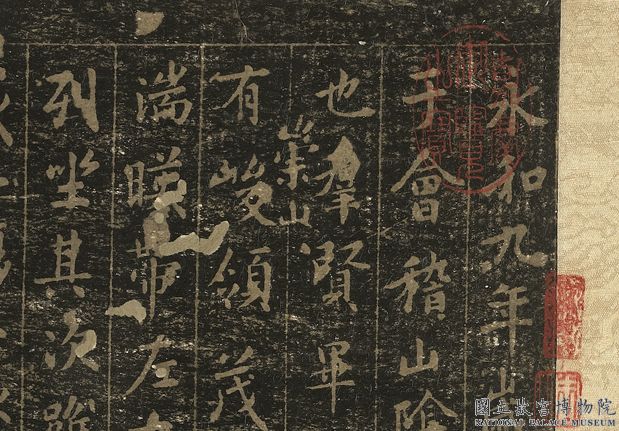 永和九年
于會稽山陰
也羣賢畢
崇山
有峻領茂
湍暎帶左
列坐其次
國立故宮博物院
NATIONAL PALACE MUSEUM